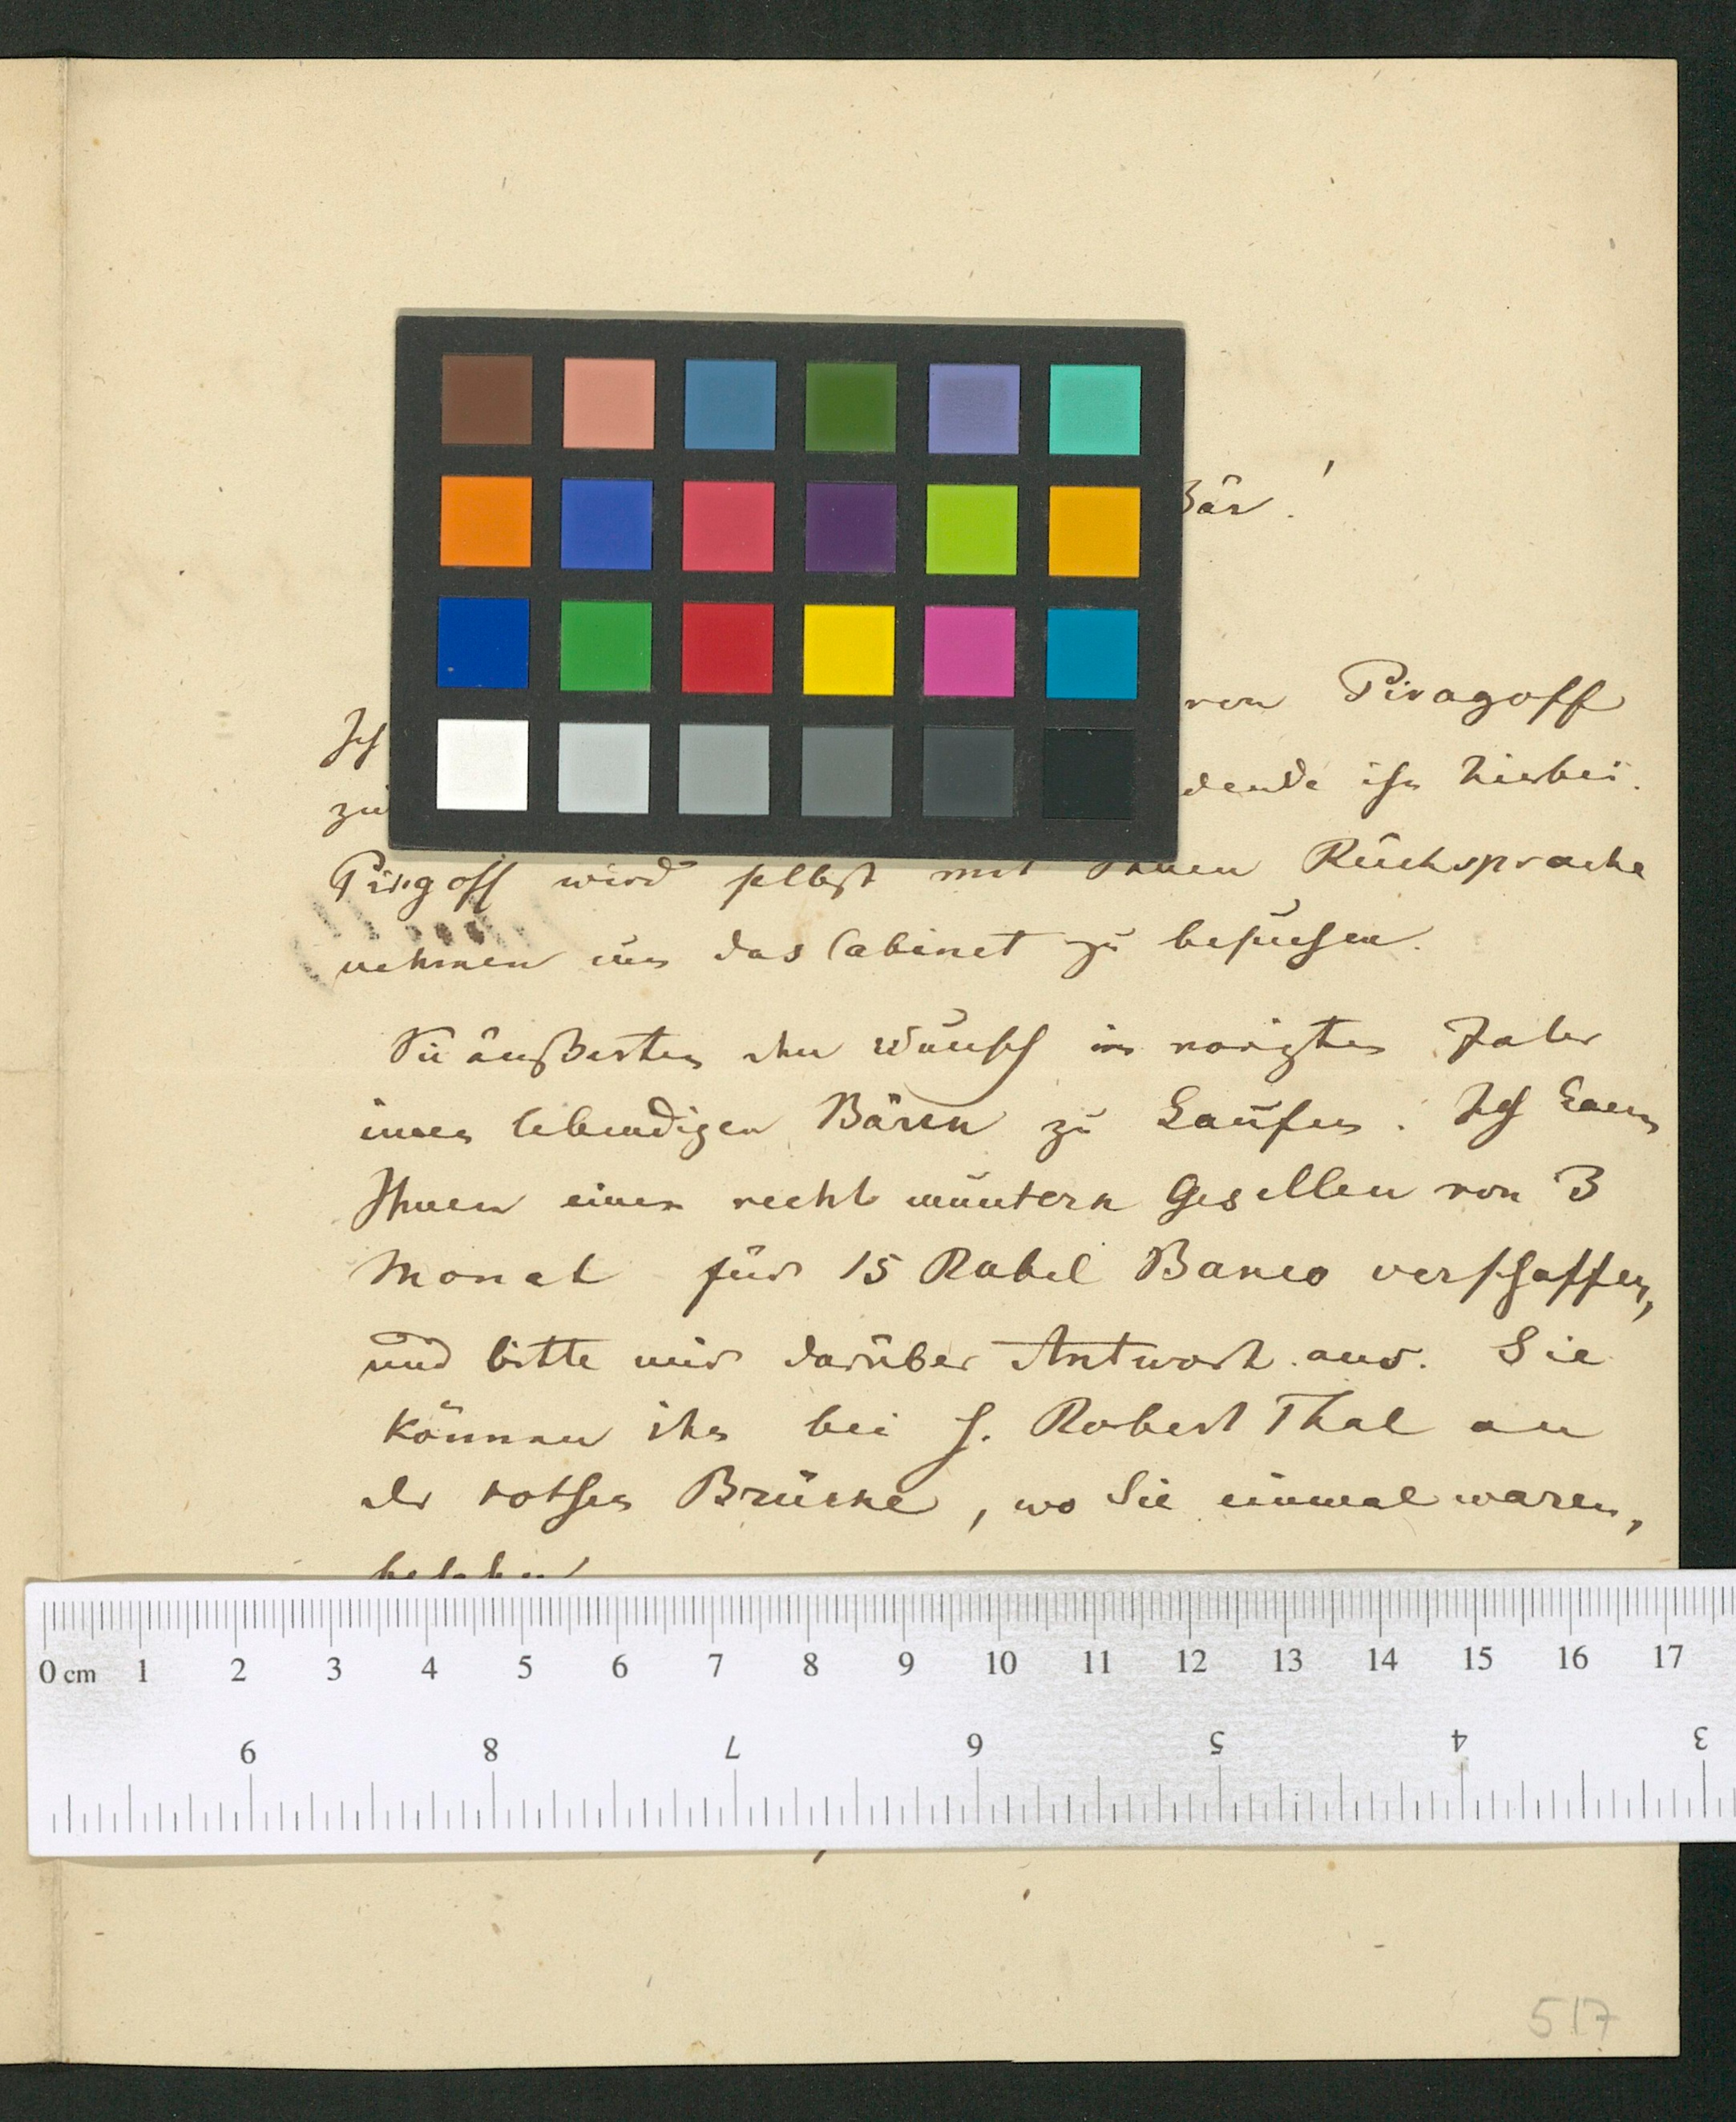 Bär.!
von Piragoff
Ich
zu
sende ihn hierbei.
Pirogoff wird selbst mit Ihnen Rücksprache
nehmen um das Cabinet zu besuchen.
Sie äußerten den Wunsch im vorigten Jahr
einen lebendigen Bären zu kaufen. Ich kann
Ihnen einen recht muntern Gesellen von 3
Monat für 15 Rubel Banco verschaffen,
und bitte mir darüber Antwort aus. Sie
können ihn bei H. Robert Thal an
der rothen Brücke, wo Sie einmal waren,
besehen
0 cm 1 2 3 4 5 6 7 8 9 10 11 12 13 14 15 16 17
9 8 7 6 5 4 3
517